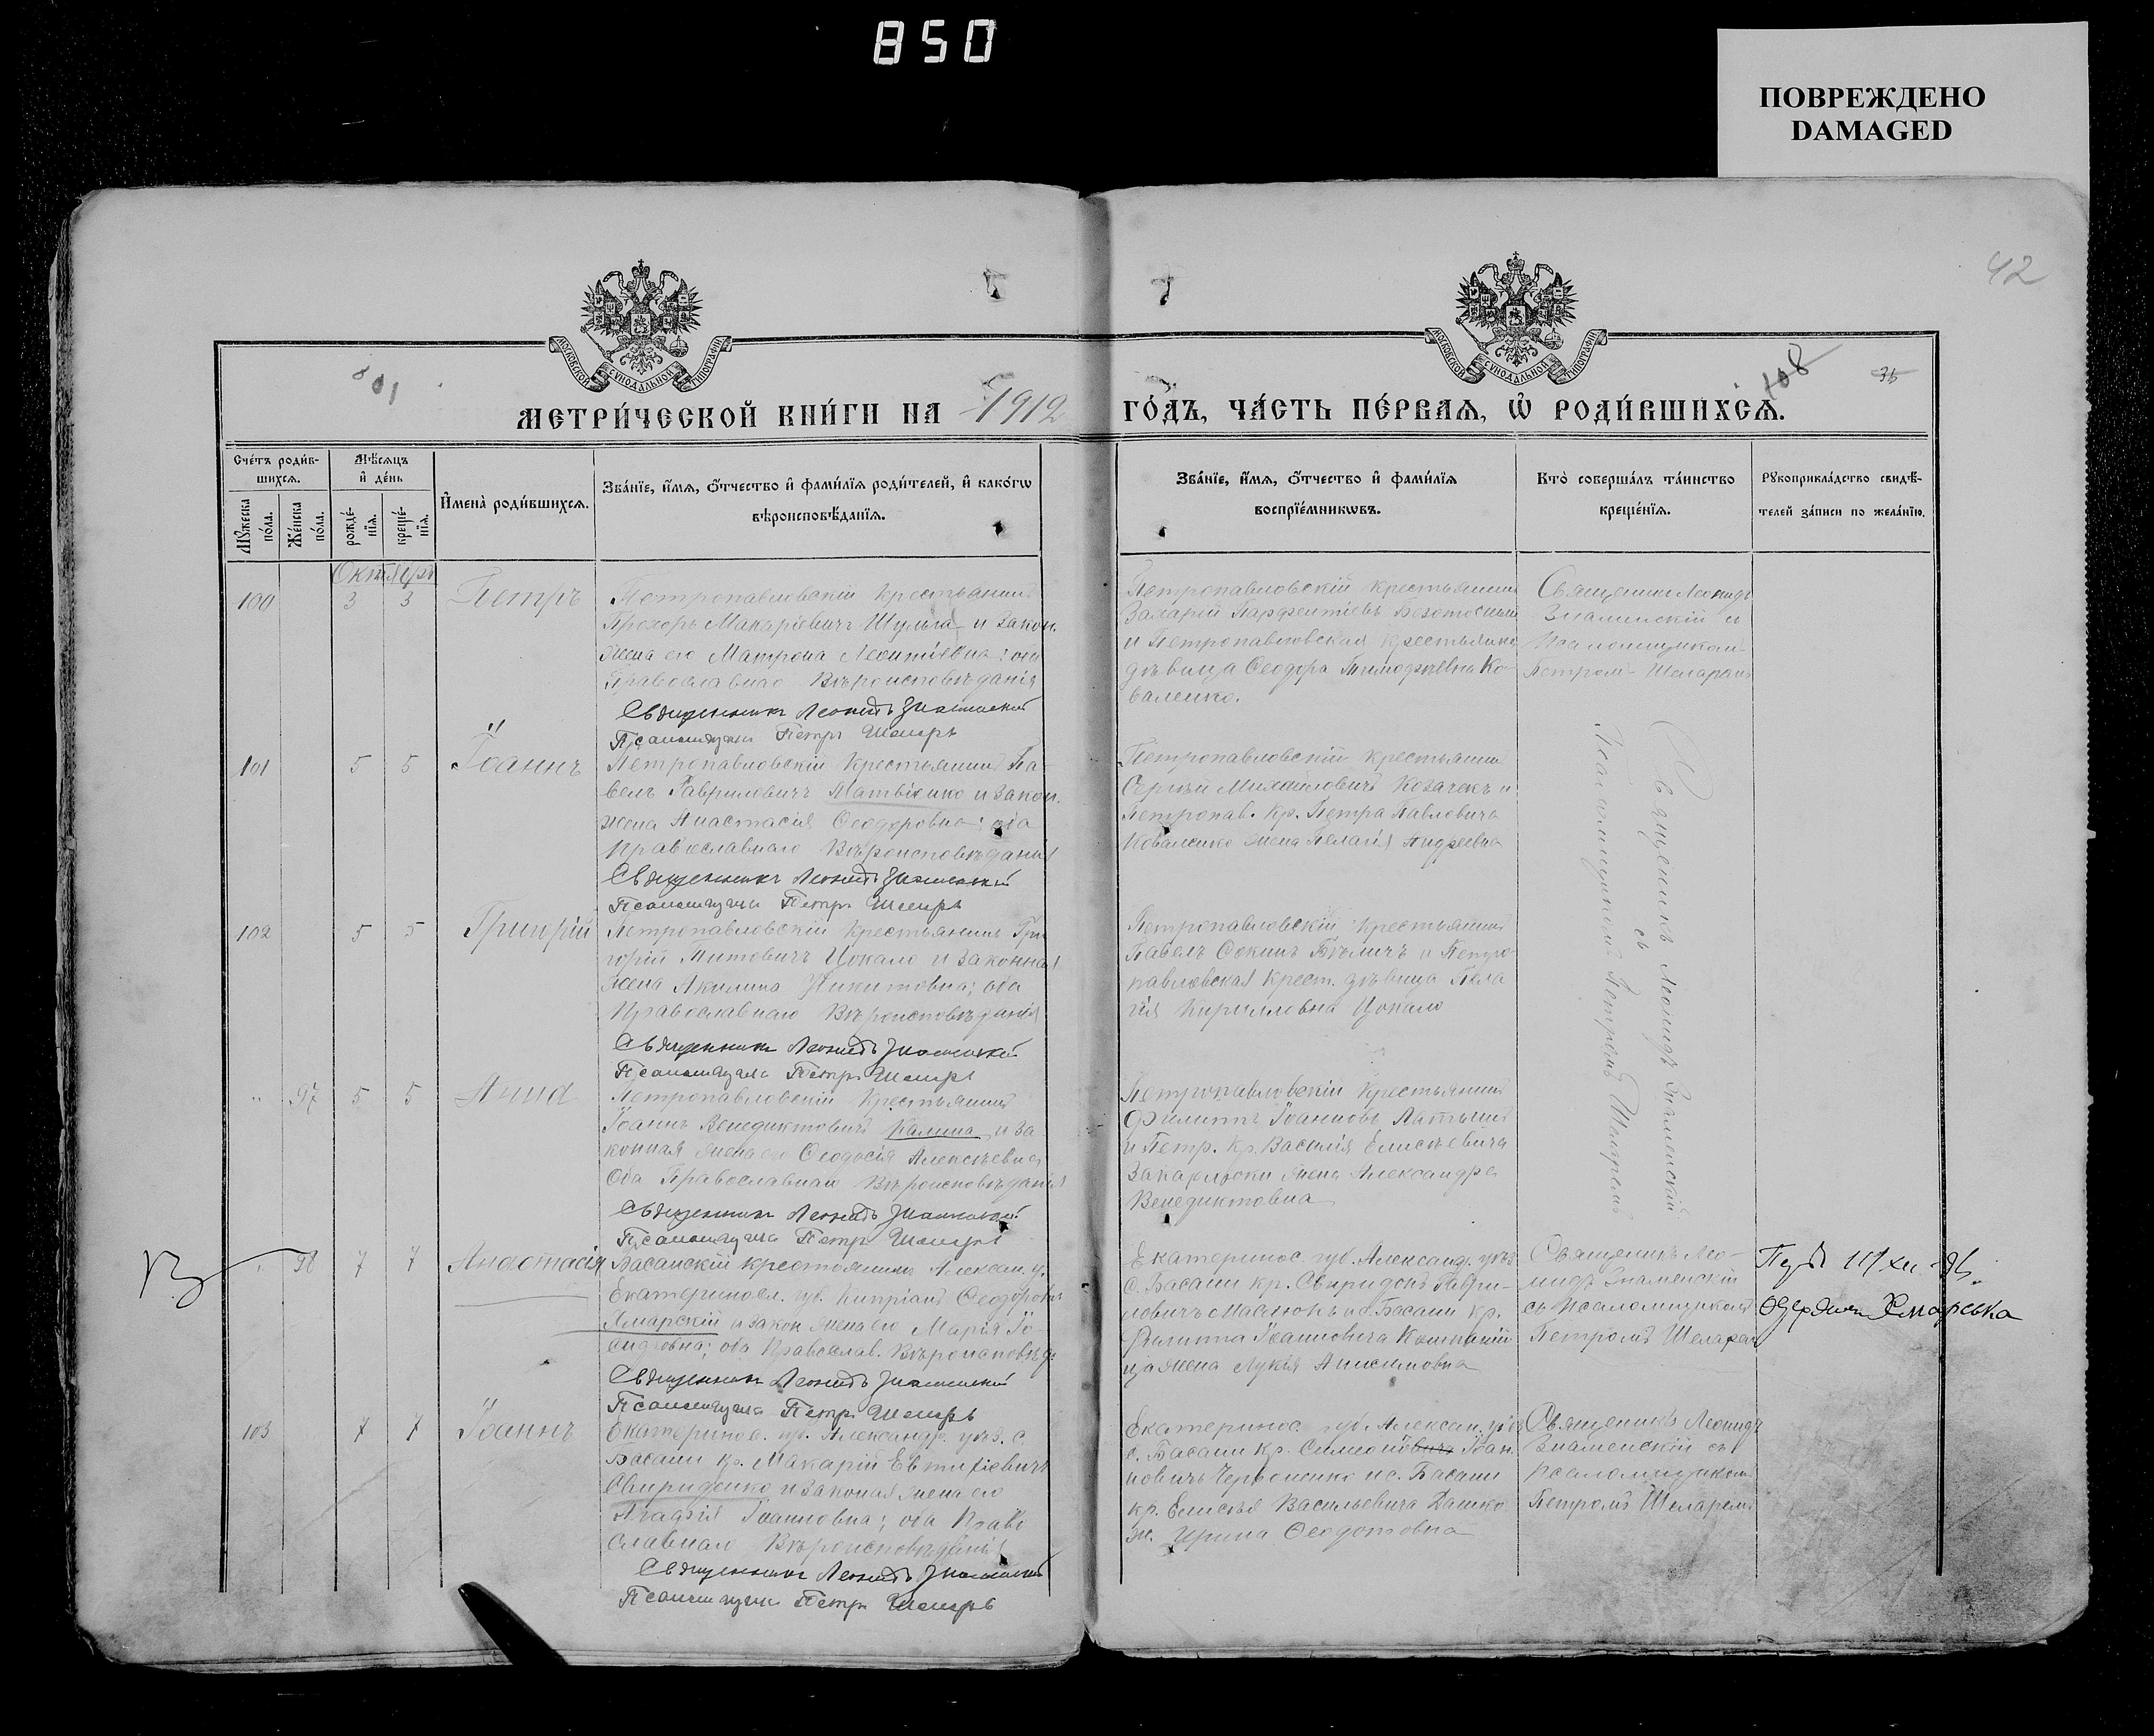 850
ПОВРЕЖДЕНО
DAMAGED
42
МОСКОВСКОЙ СѴНОДАЛЬНОЙ ТИПОГРАФІИ
МОСКОВСКОЙ СѴНОДАЛЬНОЙ ТИПОГРАФІИ
108
35
МЕТРИ́ЧЕСКОЙ КНИ́ГИ НА 1912 ГО́ДЪ, ЧА́СТЬ ПЕ́РВАЯ, Ѡ҆ РОДИ́ВШИХСЯ.
Сче́тъ роди́в-
шихся.
Мѹ́жеска
по́ла.
Же́нска
по́ла.
Мѣ́сяцъ
и҆ де́нь
рожде́-
нїя.
креще́-
нїя.
И҆мена̀ роди́вшихся.
Зва́нїе, и҆́мя, о҆́тчество и҆ фами́лїя роди́телей, и҆ како́гѡ
вѣроисповѣ́данїя.
Зва́нїе, и҆́мя, о҆́тчество и҆ фами́лїя
воспрїе́мникѡвъ.
Кто̀ соверша́лъ та́инство
креще́нїя.
Рѹкоприкла́дство свидѣ́-
телей за́писи по жела́нїю.
Октябрь
100 3 3 Петръ
Петропавловскій крестьянинъ
Прохоръ Макаріевичъ Шульга и закон.
жена его Матрона Леонтіевна; оба
Православнаго Вѣроисповѣданія
Священникъ Леонидъ Знаменскій
Псаломщикъ Петръ Шеларь
Петропавловскій крестьянинъ
Захарій Парфентіевъ
и Петропавловская крестьянка
дѣвица Ѳеодора Тимофеевна Ко-
валенко.
Священникъ Леонидъ
Знаменскій съ
Псаломщикомъ
Петромъ Шеларемъ
101 5 5 Іоаннъ
Петропавловскій крестьянинъ Па-
велъ Гавриловичъ Матвіенко и закон.
жена Анастасія Ѳеодоровна; оба
Православнаго Вѣроисповѣданія
Священникъ Леонидъ Знаменскій
Псаломщикъ Петръ Шеларь
Петропавловскій крестьянинъ
Сергѣй Михайловичъ Козачекъ и
Петропав. кр. Петра Павловича
Коваленко жена Пелагія Андреевна
Священникъ Леонидъ Знаменскій
съ
Псаломщикомъ Петромъ Шеларемъ
102 5 5 Григорій
Петропавловскій крестьянинъ Гри-
горій Титовичъ Цокало и законная
жена Акилина Никитовна; оба
Православнаго Вѣроисповѣданія
Священникъ Леонидъ Знаменскій
Псаломщикъ Петръ Шеларь
Петропавловскій крестьянинъ
Павелъ и Петро-
павловская крест. дѣвица Пела
гія Кирилловна Цокало
" 97 5 5 Анна
Петропавловскій крестьянинъ
Іоаннъ Венедиктовичъ Калина и за
конная жена его Ѳеодосія Алексѣевна
Оба Православнаго Вѣроисповѣданія
Священникъ Леонидъ Знаменскій
Псаломщикъ Петръ Шеларь
Петропавловскій крестьянинъ
Филиппъ Іоанновъ
и Петр. кр. Василія Елисѣевича
жена Александра
Венедиктовна
98 7 7 Анастасія
Басанскій крестьянинъ Алексан. у.
Екатеринослав. губ. Кипріанъ Ѳеодоровъ
Хмарскій и закон жена его Марія Іо-
сифовна; оба Православ. Вѣроисповѣд.
Священникъ Леонидъ Знаменскій
Псаломщикъ Петръ Шеларь
Екатеринос. губ. Александ. уѣз.
с. Басани кр. Свиридонъ Гаври-
ловичъ и с. Басани кр.
Филиппа Іоанновича
жена Лукія Анисимовна
Священникъ Лео-
нидъ Знаменскій
съ Псаломщикомъ
Петромъ Шеларемъ
Хмарська
103 7 7 Іоаннъ
Екатеринос. губ. Александр. уѣз. с.
Басани кр. Макарій Евтихіевичъ
Свириденко и законая жена его
Агафія Іоанновна; оба Право
славнаго Вѣроисповѣданія
Священникъ Леонидъ Знаменскій
Псаломщикъ Петръ Шеларь
Екатеринос. губ. Алексан. уѣз.
с. Басани кр. Симеон Іоан-
новичъ Червоненко и с. Басани
кр. Елисѣя Васильевича Дашко
ж. Ирина Ѳеодотовна
Священникъ Леонидъ
Знаменскій съ
Псаломщикомъ
Петромъ Шеларемъ